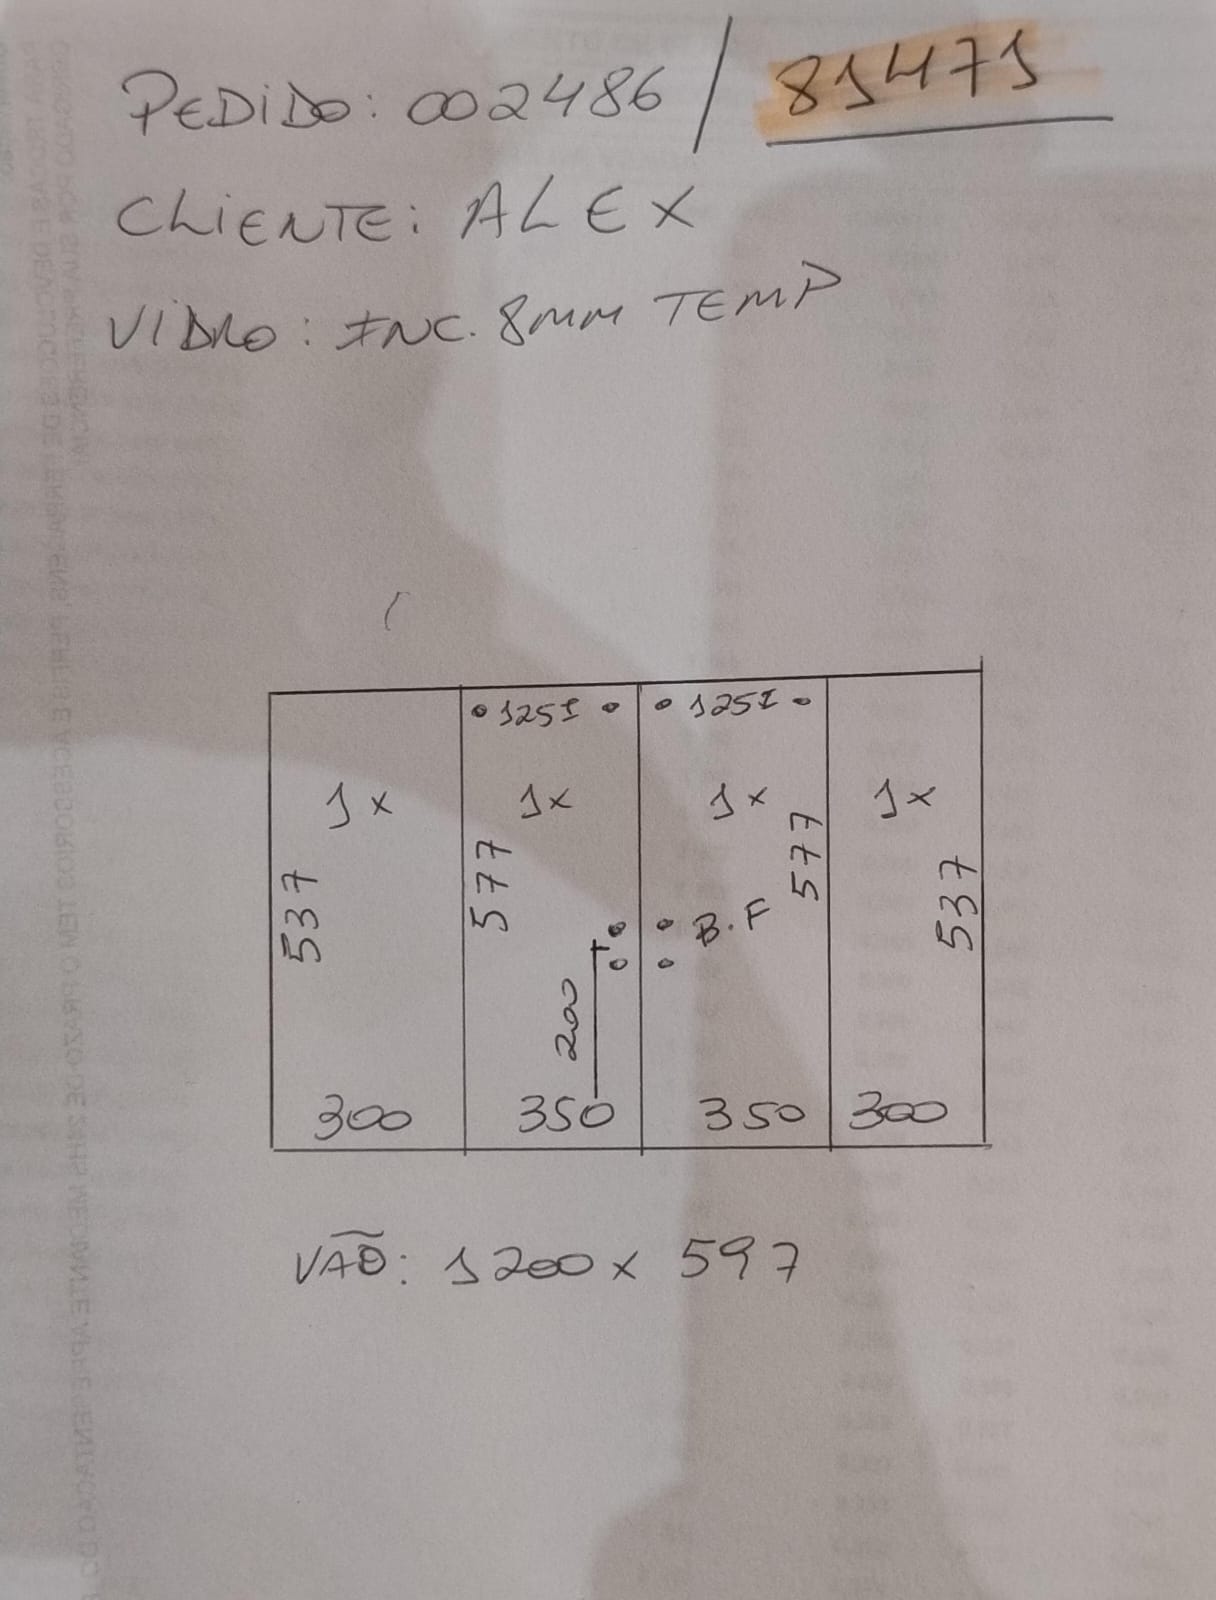 PEDIDO: 002486 / 81471
CLIENTE: ALEX
VIDRO: INC. 8mm TEMP
125I 125I
1x 1x 1x 1x
537 577 577 537
B.F
200
300 350 350 300
VÃO: 1200 x 597